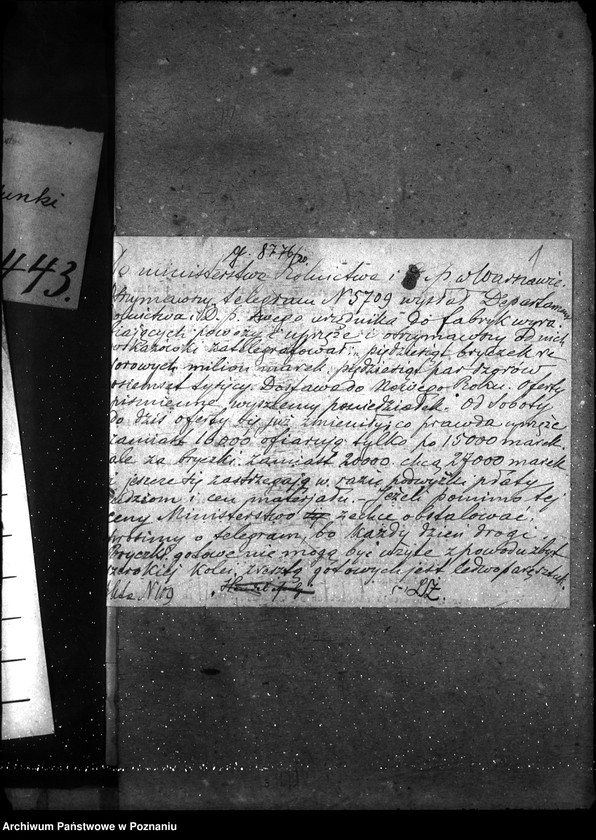 unki
443.
g. 8776/20.
1
Do ministerstwa Rolnictwa i D. P. w Warszawie.
Otrzymawszy telegram N 5709 wysłał Departament
Rolnictwa i D. p. swego urzędnika do fabryk wyra-
biających powozy i uprzęże i otrzymawszy od nich
wskazówki zatelegrafował: pięćdziesiąt bryczek re-
sorowych milion marek, pięćdziesiąt par szorów
osiemset tysięcy. Dostawa do Nowego Roku. Oferty
piśmienne wyszlemy poniedziałek. Od soboty
do dziś oferty się już zmieniły, co prawda uprzęże
zamiast 16000 ofiarują tylko po 15000 marek
ale za bryczki zamiast 20000 chcą 24000 marek
i jeszcze się zastrzegają w razie podwyżki płacy
ludziom i cen materjału. - Jeżeli pomimo tej
ceny Ministerstwo zechce obstalować,
prosimy o telegram, bo każdy dzień drogi.
Bryczki gotowe nie mogą być użyte z powodu zbyt
szerokiej kolei, zresztą gotowych jest ledwo parę sztuk.
N 109
Archiwum Państwowe w Poznaniu